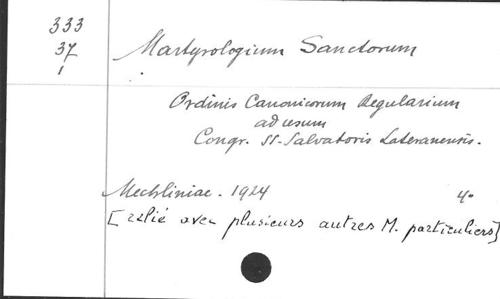 333
37
1
Martyrologium Sanctorum
Ordinis Canonicorum Regularium
ad usum
Congr. SS. Salvatoris Lateranensis.
Mechliniae. 1924 4º
[relié avec plusieurs autres M. particuliers]